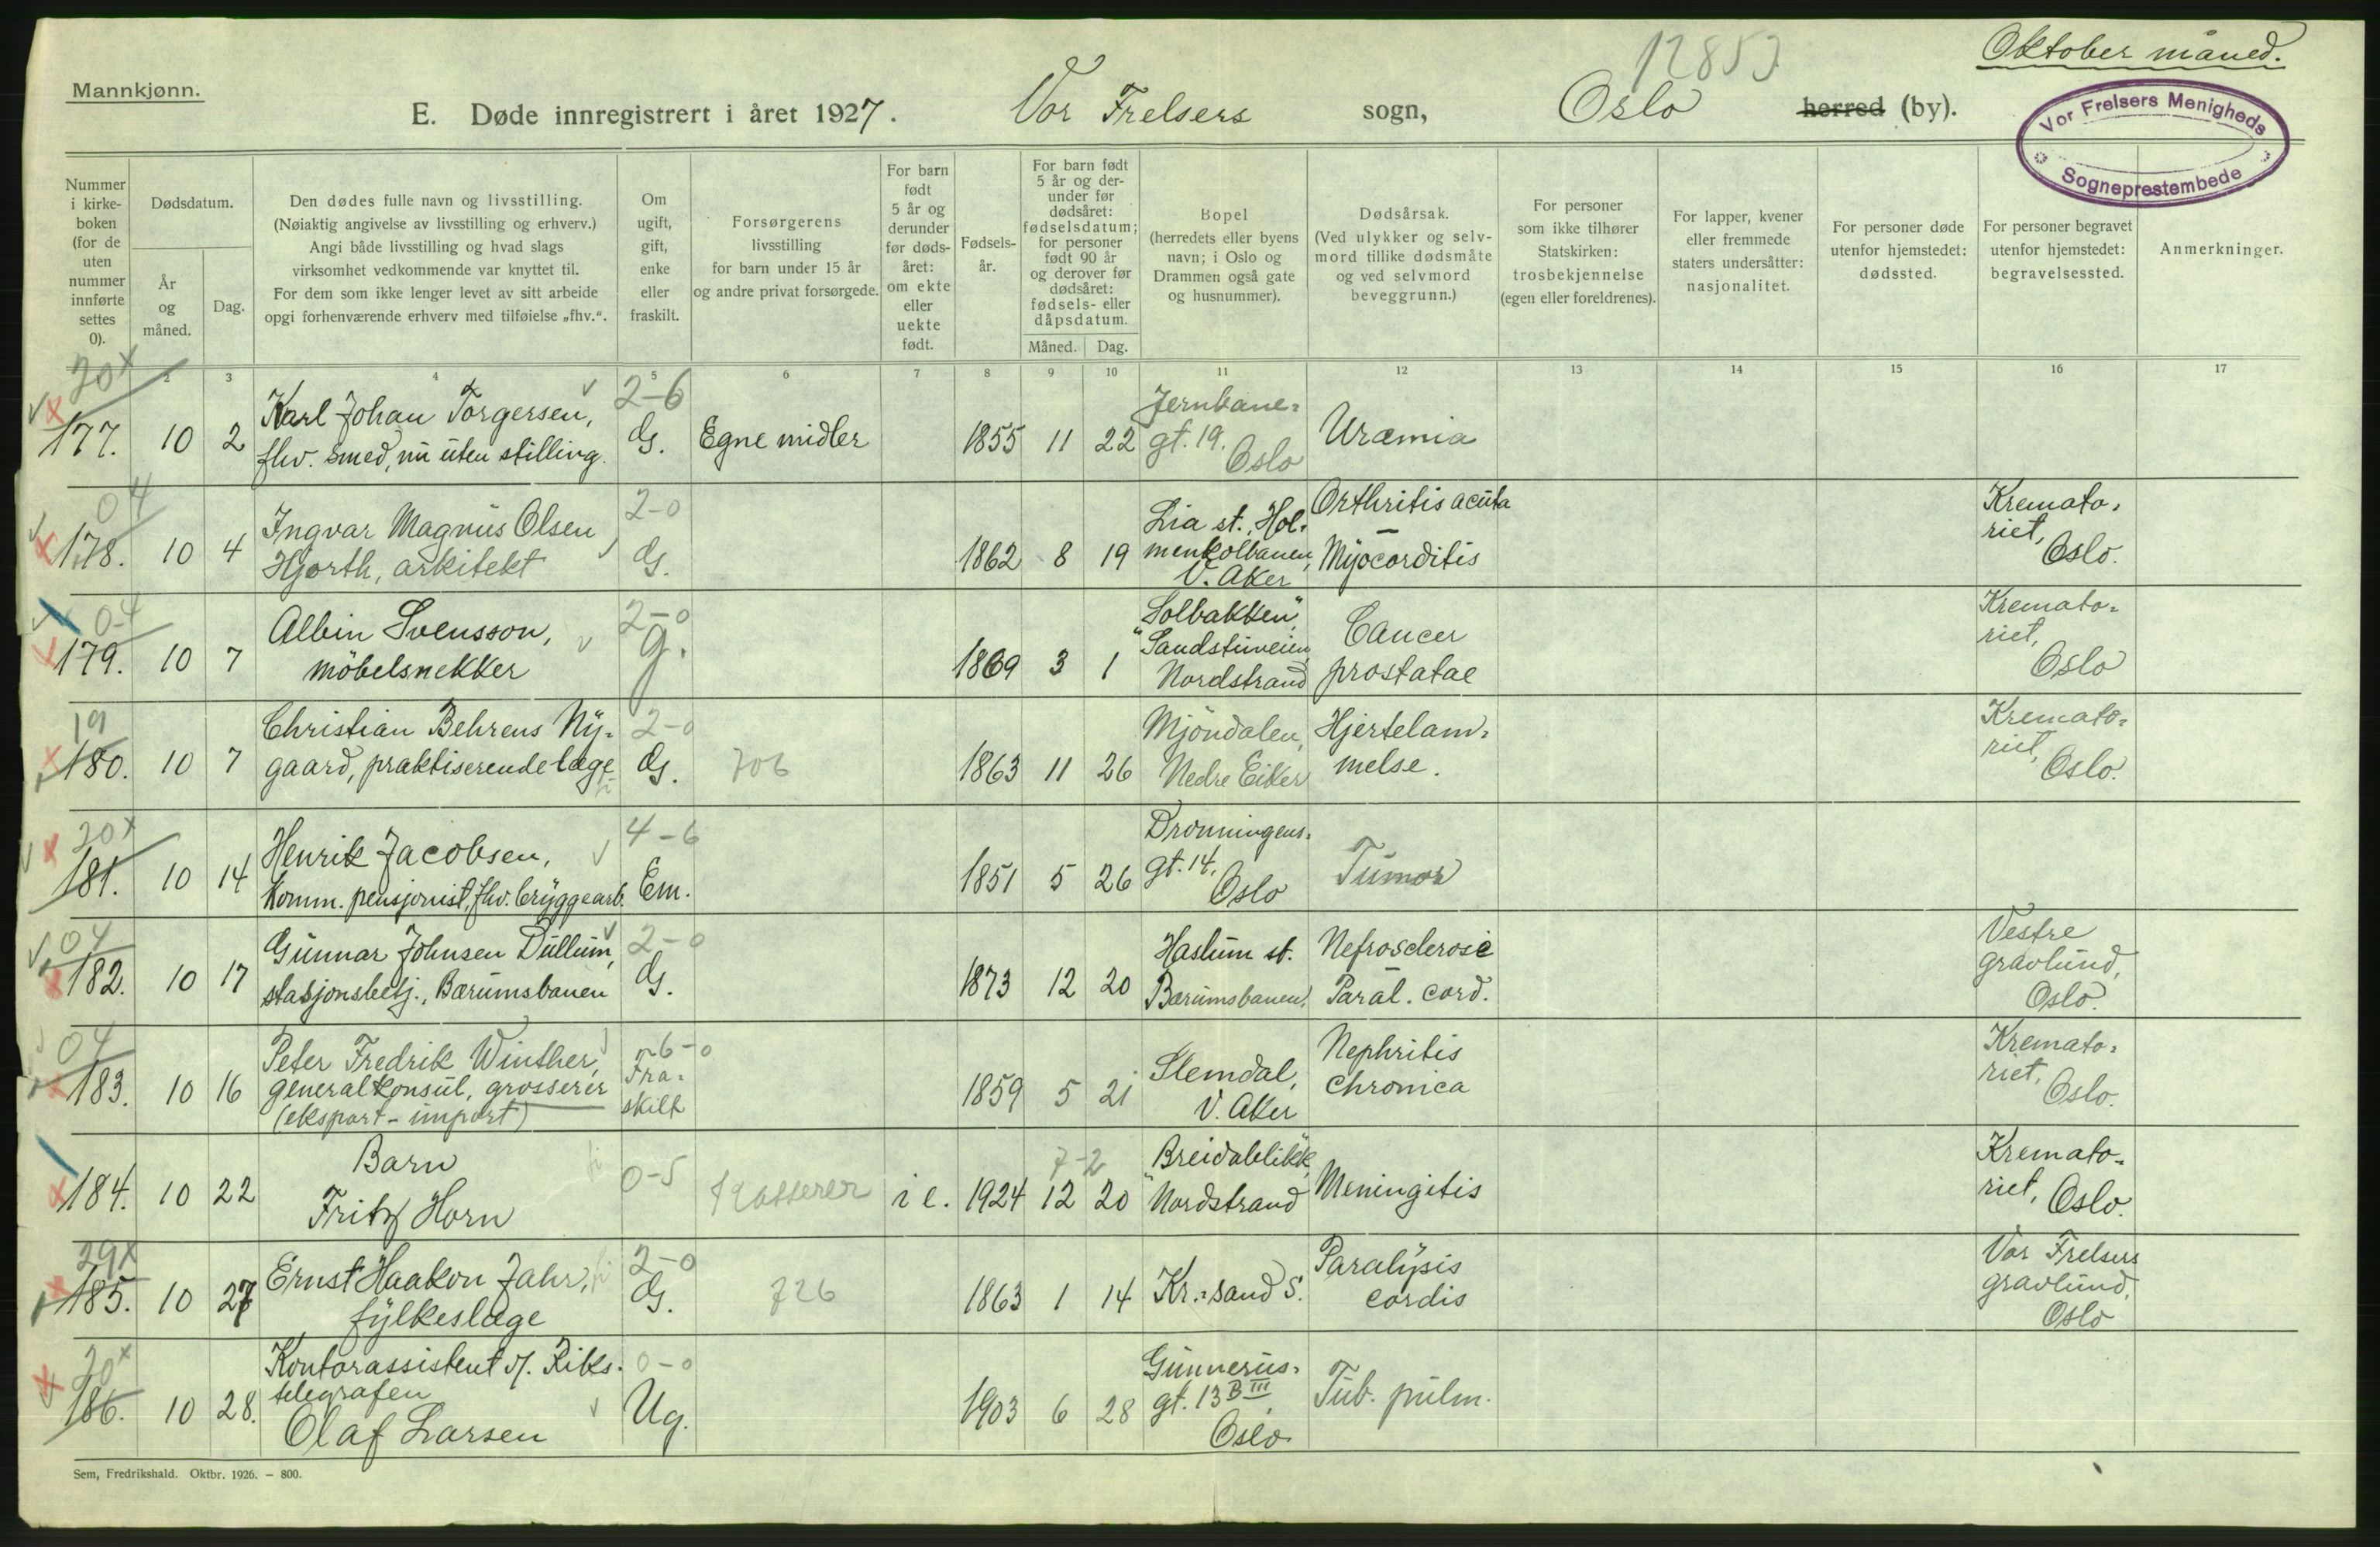 Oktober måned.
12853
Mannkjønn.
E. Døde innregistrert i året 1927. Vor Frelsers sogn, Oslo herred (by).
Vor Frelsers Menigheds
Sogneprestembede
Nummer i kirkeboken (for de uten nummer innførte settes 0).
Dødsdatum.
År og måned.
Dag.
Den dødes fulle navn og livsstilling.
(Nøiaktig angivelse av livsstilling og erhverv.)
Angi både livsstilling og hvad slags
virksomhet vedkommende var knyttet til.
For dem som ikke lenger levet av sitt arbeide
opgi forhenværende erhverv med tilføielse „fhv.“.
Om ugift, gift, enke eller fraskilt.
Forsørgerens
livsstilling
for barn under 15 år
og andre privat forsørgede.
For barn født 5 år og derunder før dødsåret: om ekte eller uekte født.
Fødselsår.
For barn født 5 år og derunder før dødsåret: fødselsdatum; for personer født 90 år og derover før dødsåret: fødsels- eller dåpsdatum.
Måned. Dag.
Bopel
(herredets eller byens
navn; i Oslo og
Drammen også gate
og husnummer).
Dødsårsak.
(Ved ulykker og selv-
mord tillike dødsmåte
og ved selvmord
beveggrunn.)
For personer
som ikke tilhører
Statskirken:
trosbekjennelse
(egen eller foreldrenes).
For lapper, kvener
eller fremmede
staters undersåtter:
nasjonalitet.
For personer døde
utenfor hjemstedet:
dødssted.
For personer begravet
utenfor hjemstedet:
begravelsessted.
Anmerkninger.
2 3 4 5 6 7 8 9 10 11 12 13 14 15 16 17
20x 2-6
177. 10 2 Karl Johan Torgersen, fhv. smed, nu uten stilling. G. Egne midler 1855 11 22 Jernbane= gt. 19. Oslo Uræmia
04 2-0
178. 10 4 Ingvar Magnus Olsen Hjorth, arkitekt G. 1862 8 19 Lia st., Hol= menkolbanen, V. Aker Orthritis acuta – Myocorditis Kremato= riet, Oslo.
04 2-0
179. 10 7 Albin Svensson, möbelsnekker g. 1869 3 1 "Solbakken", Sandstuveien, Nordstrand Cancer prostatae Kremato= riet, Oslo
19 2-0
180. 10 7 Christian Behrens Ny= gaard, praktiserende læge G. 706 1863 11 26 Mjöndalen, Nedre Eiker Hjertelam= melse. Kremato= riet, Oslo.
20x 4-6
181. 10 14 Henrik Jacobsen, komm. pensjonist, fhv. bryggearb. Em. 1851 5 26 Dronningens= gt. 14, Oslo Tumor
04 2-0
182. 10 17 Gunnar Johnsen Dullum, stasjonsbetj., Bærumsbanen G. 1873 12 20 Haslum st. Bærumsbanen. Nefrosclerose Paral. cord. Vestre gravlund, Oslo.
04 6-0
183. 10 16 Peter Fredrik Winther, generalkonsul, grosserer (eksport - import) Fra= skilt 1859 5 21 Slemdal, V. Aker Nephritis chronica Kremato= riet, Oslo.
0-5 7-2
184. 10 22 Barn Fritz Horn kasserer i e. 1924 12 20 "Breidablikk", Nordstrand Meningitis Kremato= riet, Oslo.
29x 2-0
185. 10 27 Ernst Haakon Jahr, fylkeslæge G. 726 1863 1 14 Kr.=sand S. Paralysis cordis Vor Frelsers gravlund, Oslo
20x 0-0
186. 10 28. Kontorassistent v/. Riks= telegrafen Olaf Larsen Ug. 1903 6 28 Gunnerus= gt. 13 B III, Oslo Tub. pulm.
Sem, Fredrikshald. Oktbr. 1926. – 800.